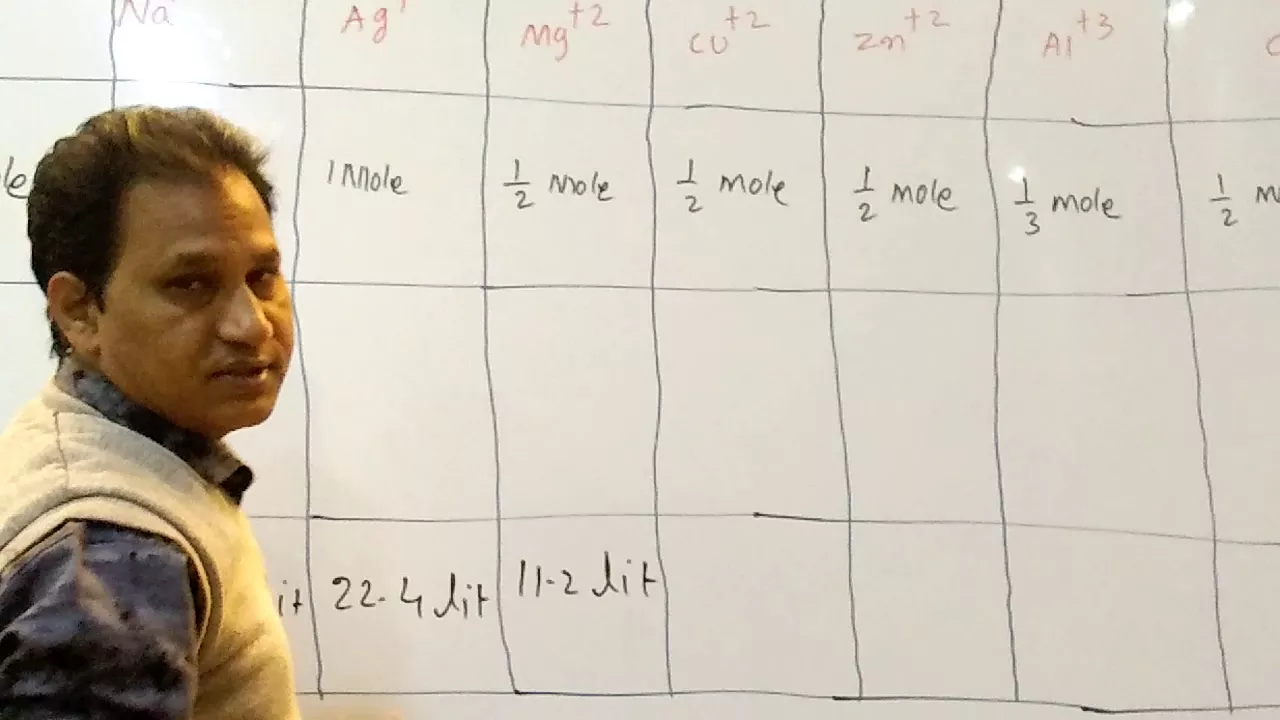 Na Ag Mg+2 Cu+2 Zn+2 Al+3
1 Mole 1/2 Mole 1/2 mole 1/2 mole 1/3 mole 1/2
it 22.4 lit 11-2 lit